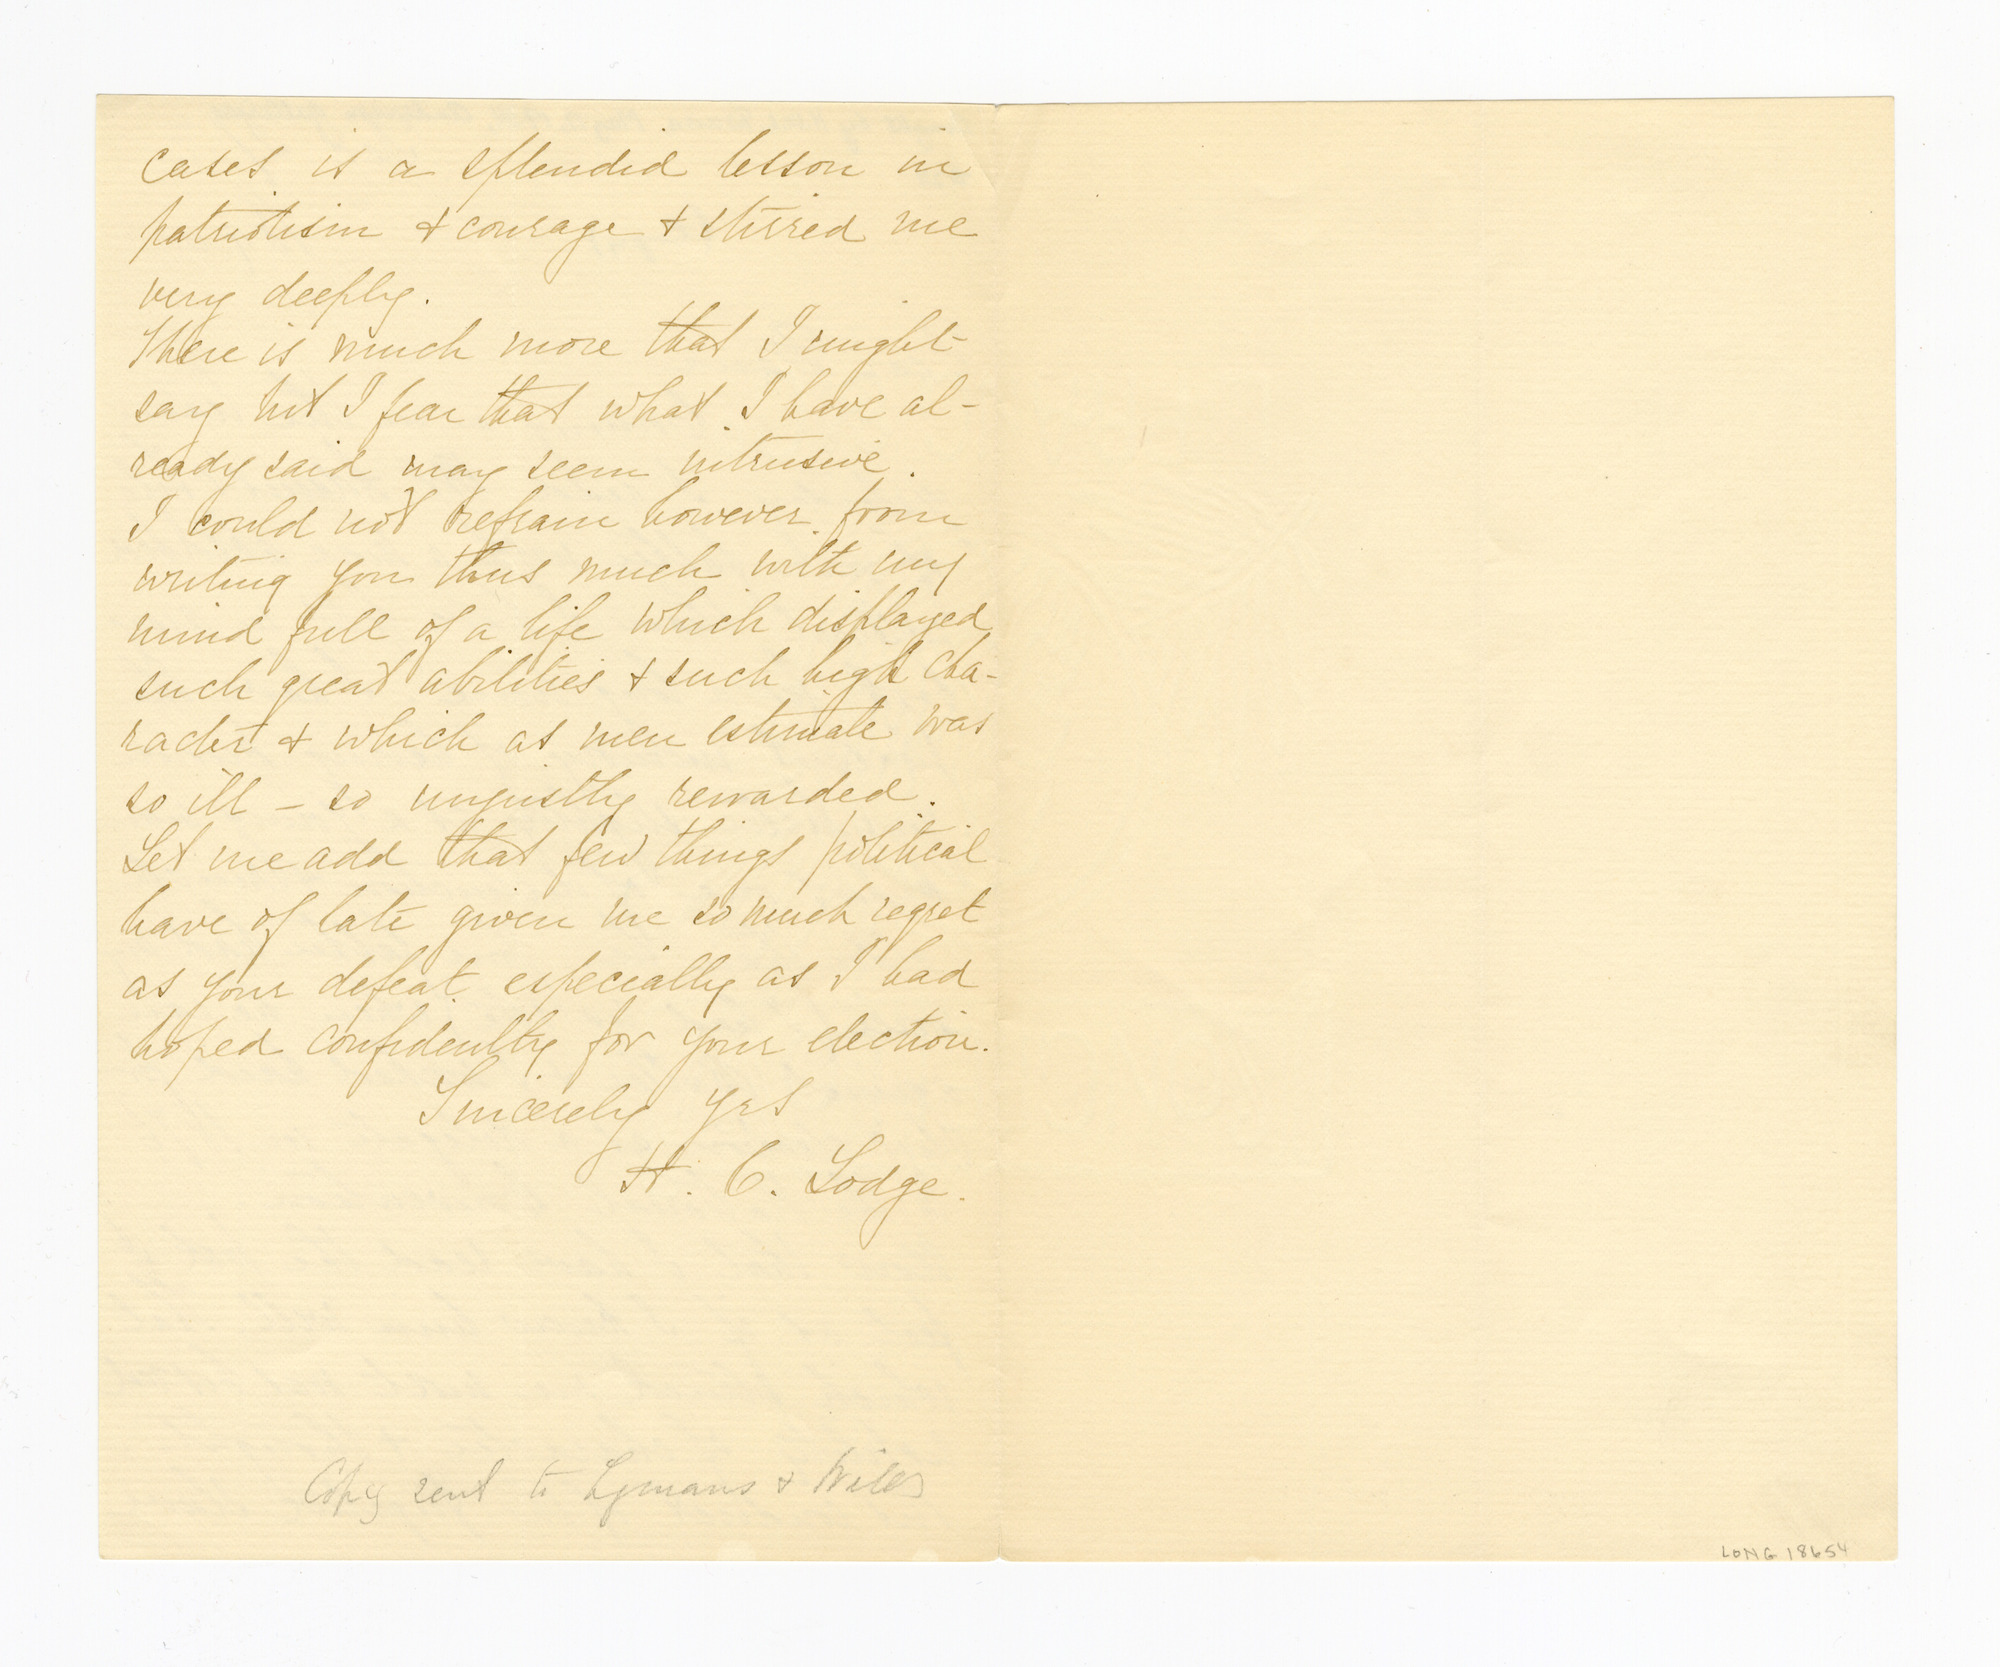 cases is a splendid lesson in
patriotism & courage & stirred me
very deeply.
There is much more that I might
say but I fear that what I have al-
ready said may seem intrusive.
I could not refrain however from
writing you thus much with my
mind full of a life which displayed
such great abilities & such high cha-
racter & which as men estimate was
so ill – so unjustly rewarded.
Let me add that few things political
have of late given me so much regret
as your defeat especially as I had
hoped confidently for your election.
Sincerely yrs
H. C. Lodge.
Copy sent to Lymans &
LONG 18654